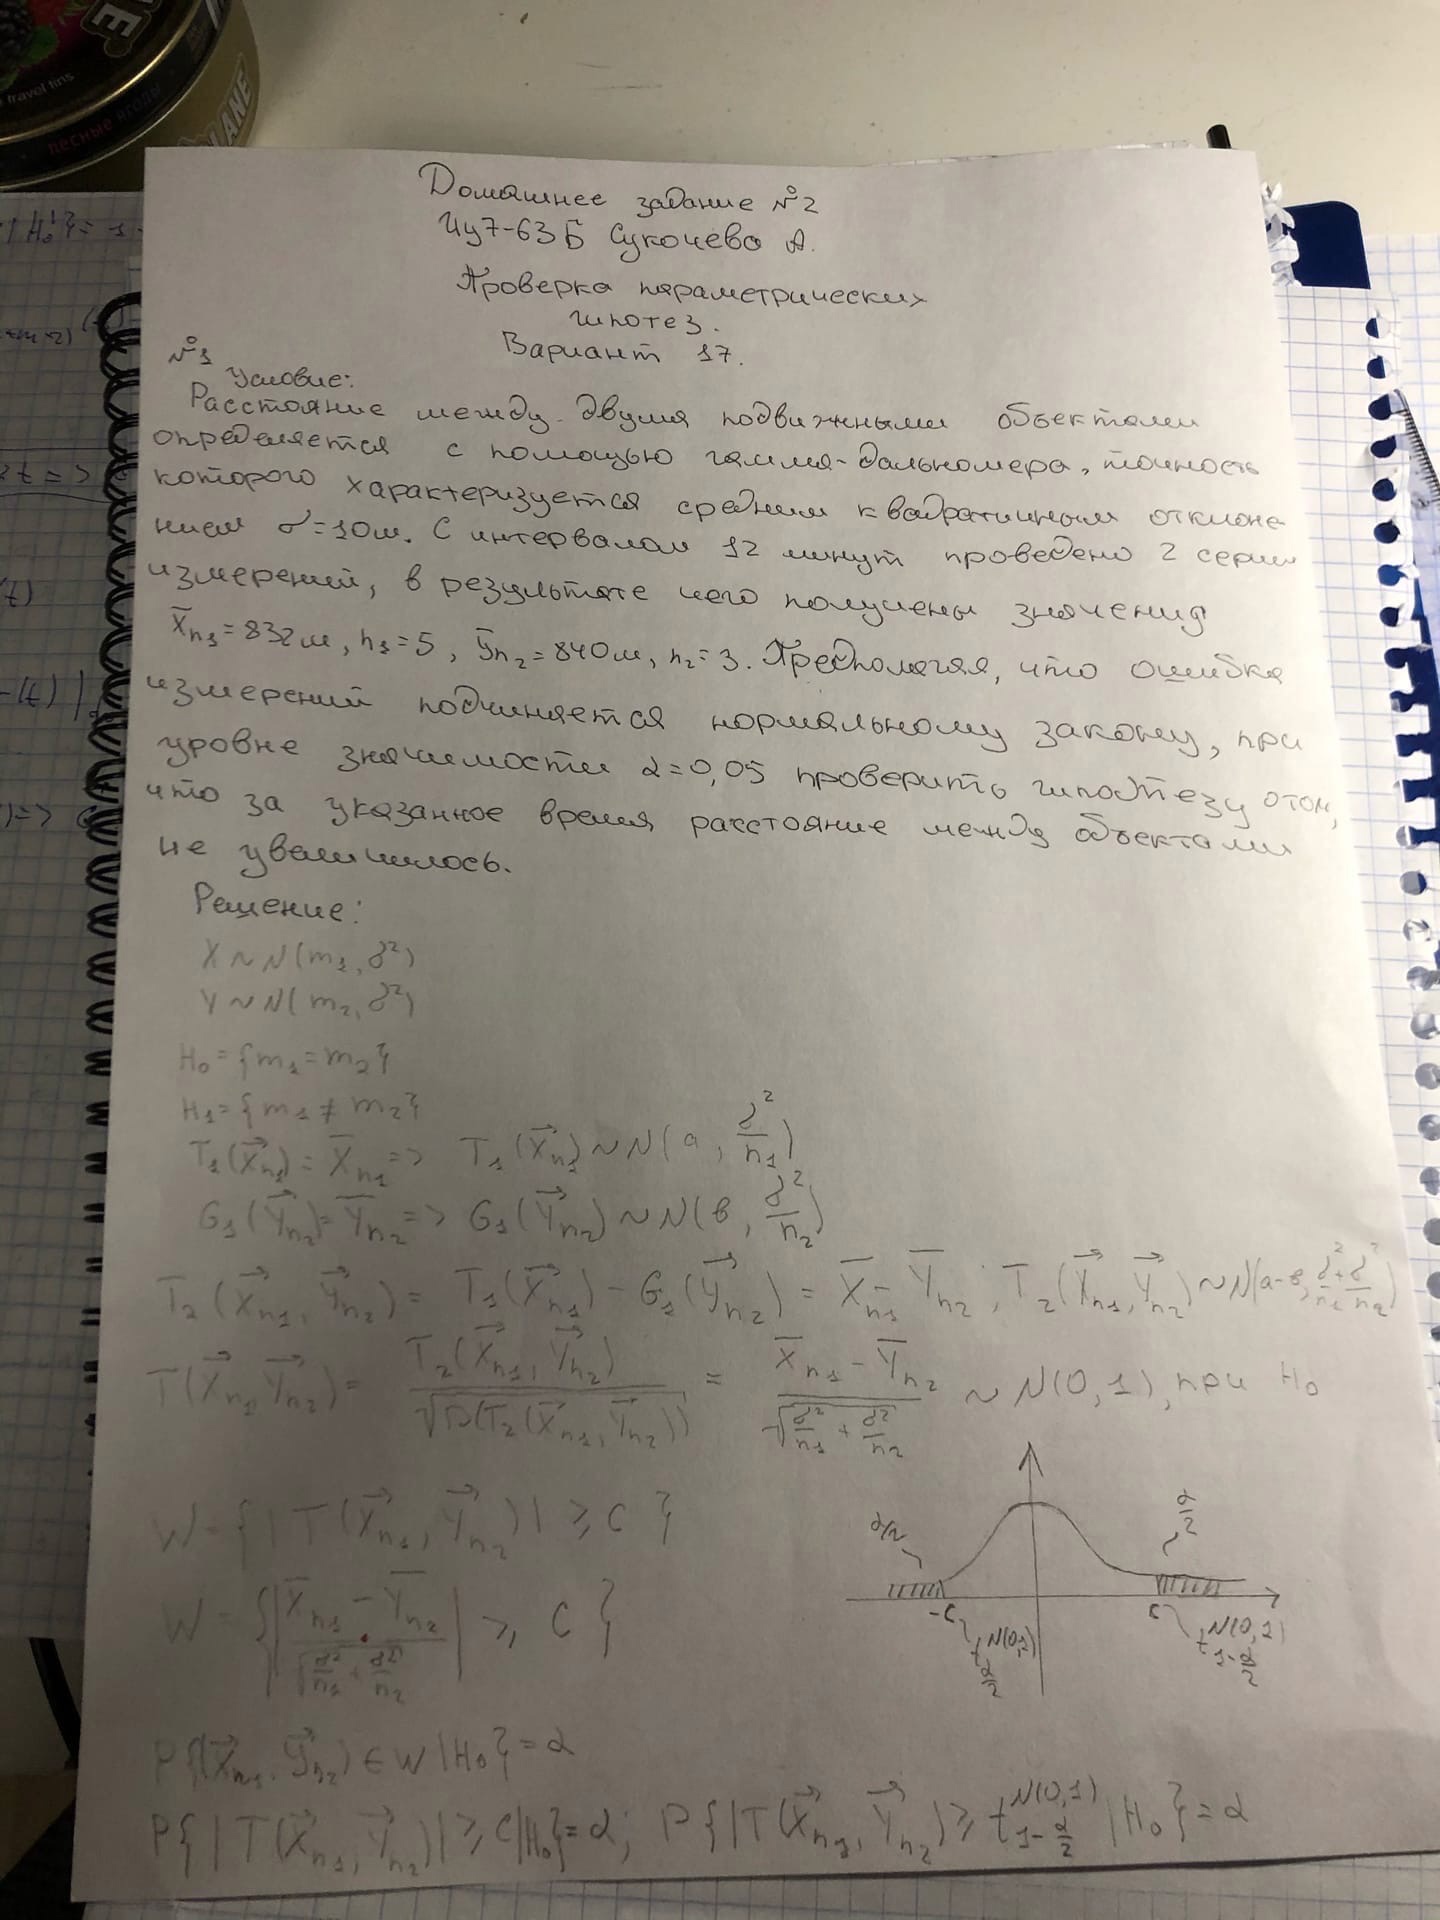 travel tins
лесные ягоды
LANE
Домашнее задание №2
Иу7-63Б Сукочева А.
Проверка параметрических
гипотез.
Вариант 17.
№1
Условие:
Расстояние между двумя подвижными объектами
определяется с помощью гамма-дальномера, точность
которого характеризуется средним квадратичным отклоне-
нием σ=10м. С интервалом 12 минут проведено 2 серии
измерений, в результате чего получены значения
X̄n₁=832м, n₁=5, ȳn₂=840м, n₂=3. Предполагая, что ошибка
измерений подчиняется нормальному закону, при
уровне значимости α=0,05 проверить гипотезу о том,
что за указанное время расстояние между объектами
не увеличилось.
Решение:
X ~ N(m₁, σ²)
Y ~ N(m₂, σ²)
H₀ = {m₁ = m₂}
H₁ = {m₁ ≠ m₂}
T₁(X⃗n₁) = X̄n₁ => T₁(X⃗n₁) ~ N(a, σ²/n₁)
G₁(Y⃗n₂) = Ȳn₂ => G₁(Y⃗n₂) ~ N(в, σ²/n₂)
T₂(X⃗n₁, Y⃗n₂) = T₁(X⃗n₁) - G₁(Y⃗n₂) = X̄n₁ - Ȳn₂; T₂(X⃗n₁, Y⃗n₂) ~ N(a-в, σ²/n₁ + σ²/n₂)
T(X⃗n₁, Y⃗n₂) = T₂(X⃗n₁, Y⃗n₂) / √D(T₂(X⃗n₁, Y⃗n₂)) = (X̄n₁ - Ȳn₂) / √(σ²/n₁ + σ²/n₂) ~ N(0,1), при H₀
W = {|T(X⃗n₁, Y⃗n₂)| ≥ C}
W = {|(X̄n₁ - Ȳn₂) / √(σ²/n₁ + σ²/n₂)| ≥ C}
α/2
α/2
-C
C
t^N(0,1)_α/2
t^N(0,1)_1-α/2
P{(X⃗n₁, Y⃗n₂) ∈ W | H₀} = α
P{|T(X⃗n₁, Y⃗n₂)| ≥ C|H₀} = α; P{|T(X⃗n₁, Y⃗n₂) ≥ t^N(0,1)_1-α/2 | H₀} = α